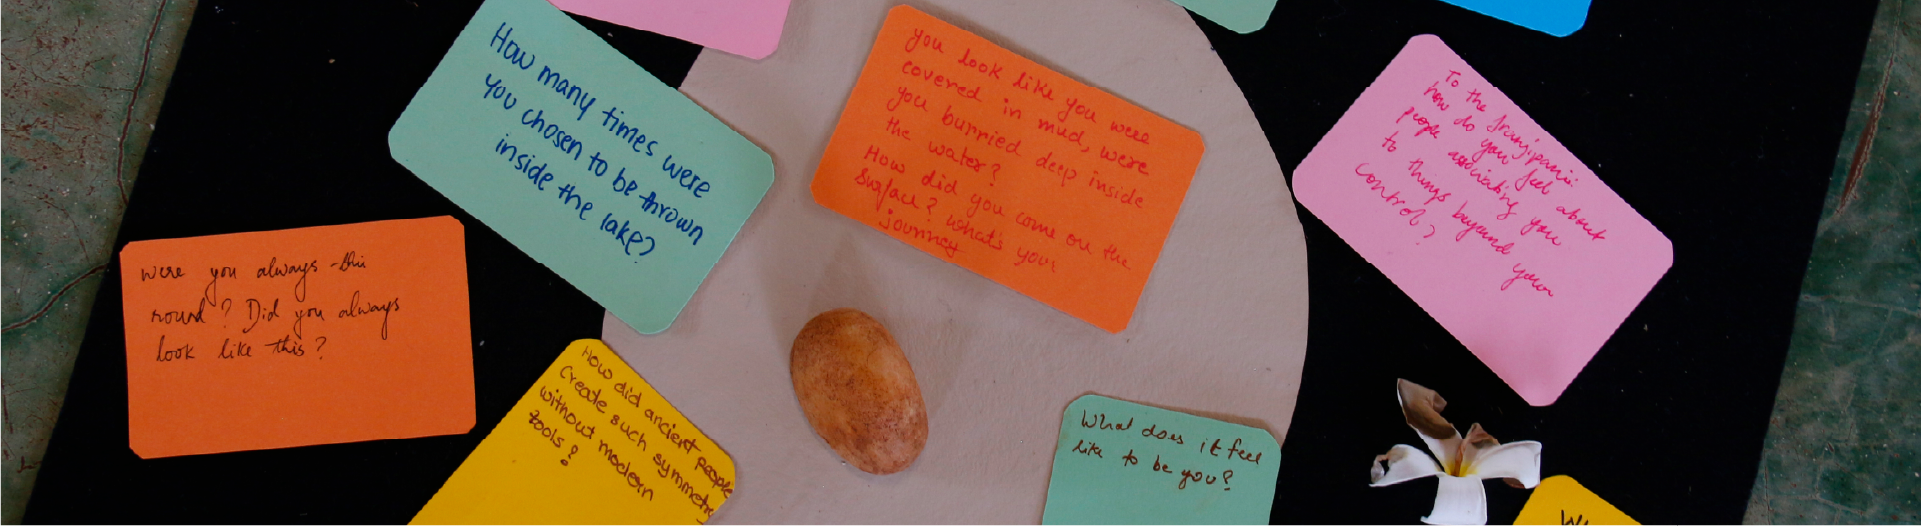 How many times were
you chosen to be thrown
inside the lake?
you look like you were
covered in mud, were
you burried deep inside
the water?
How did you come on the
surface? what's your
journey
To the frangipani:
how do you feel about
people associating you
to things beyond your
control?
were you always this
round? Did you always
look like this?
How did ancient people
create such symmetry
without modern
tools?
What does it feel
like to be you?